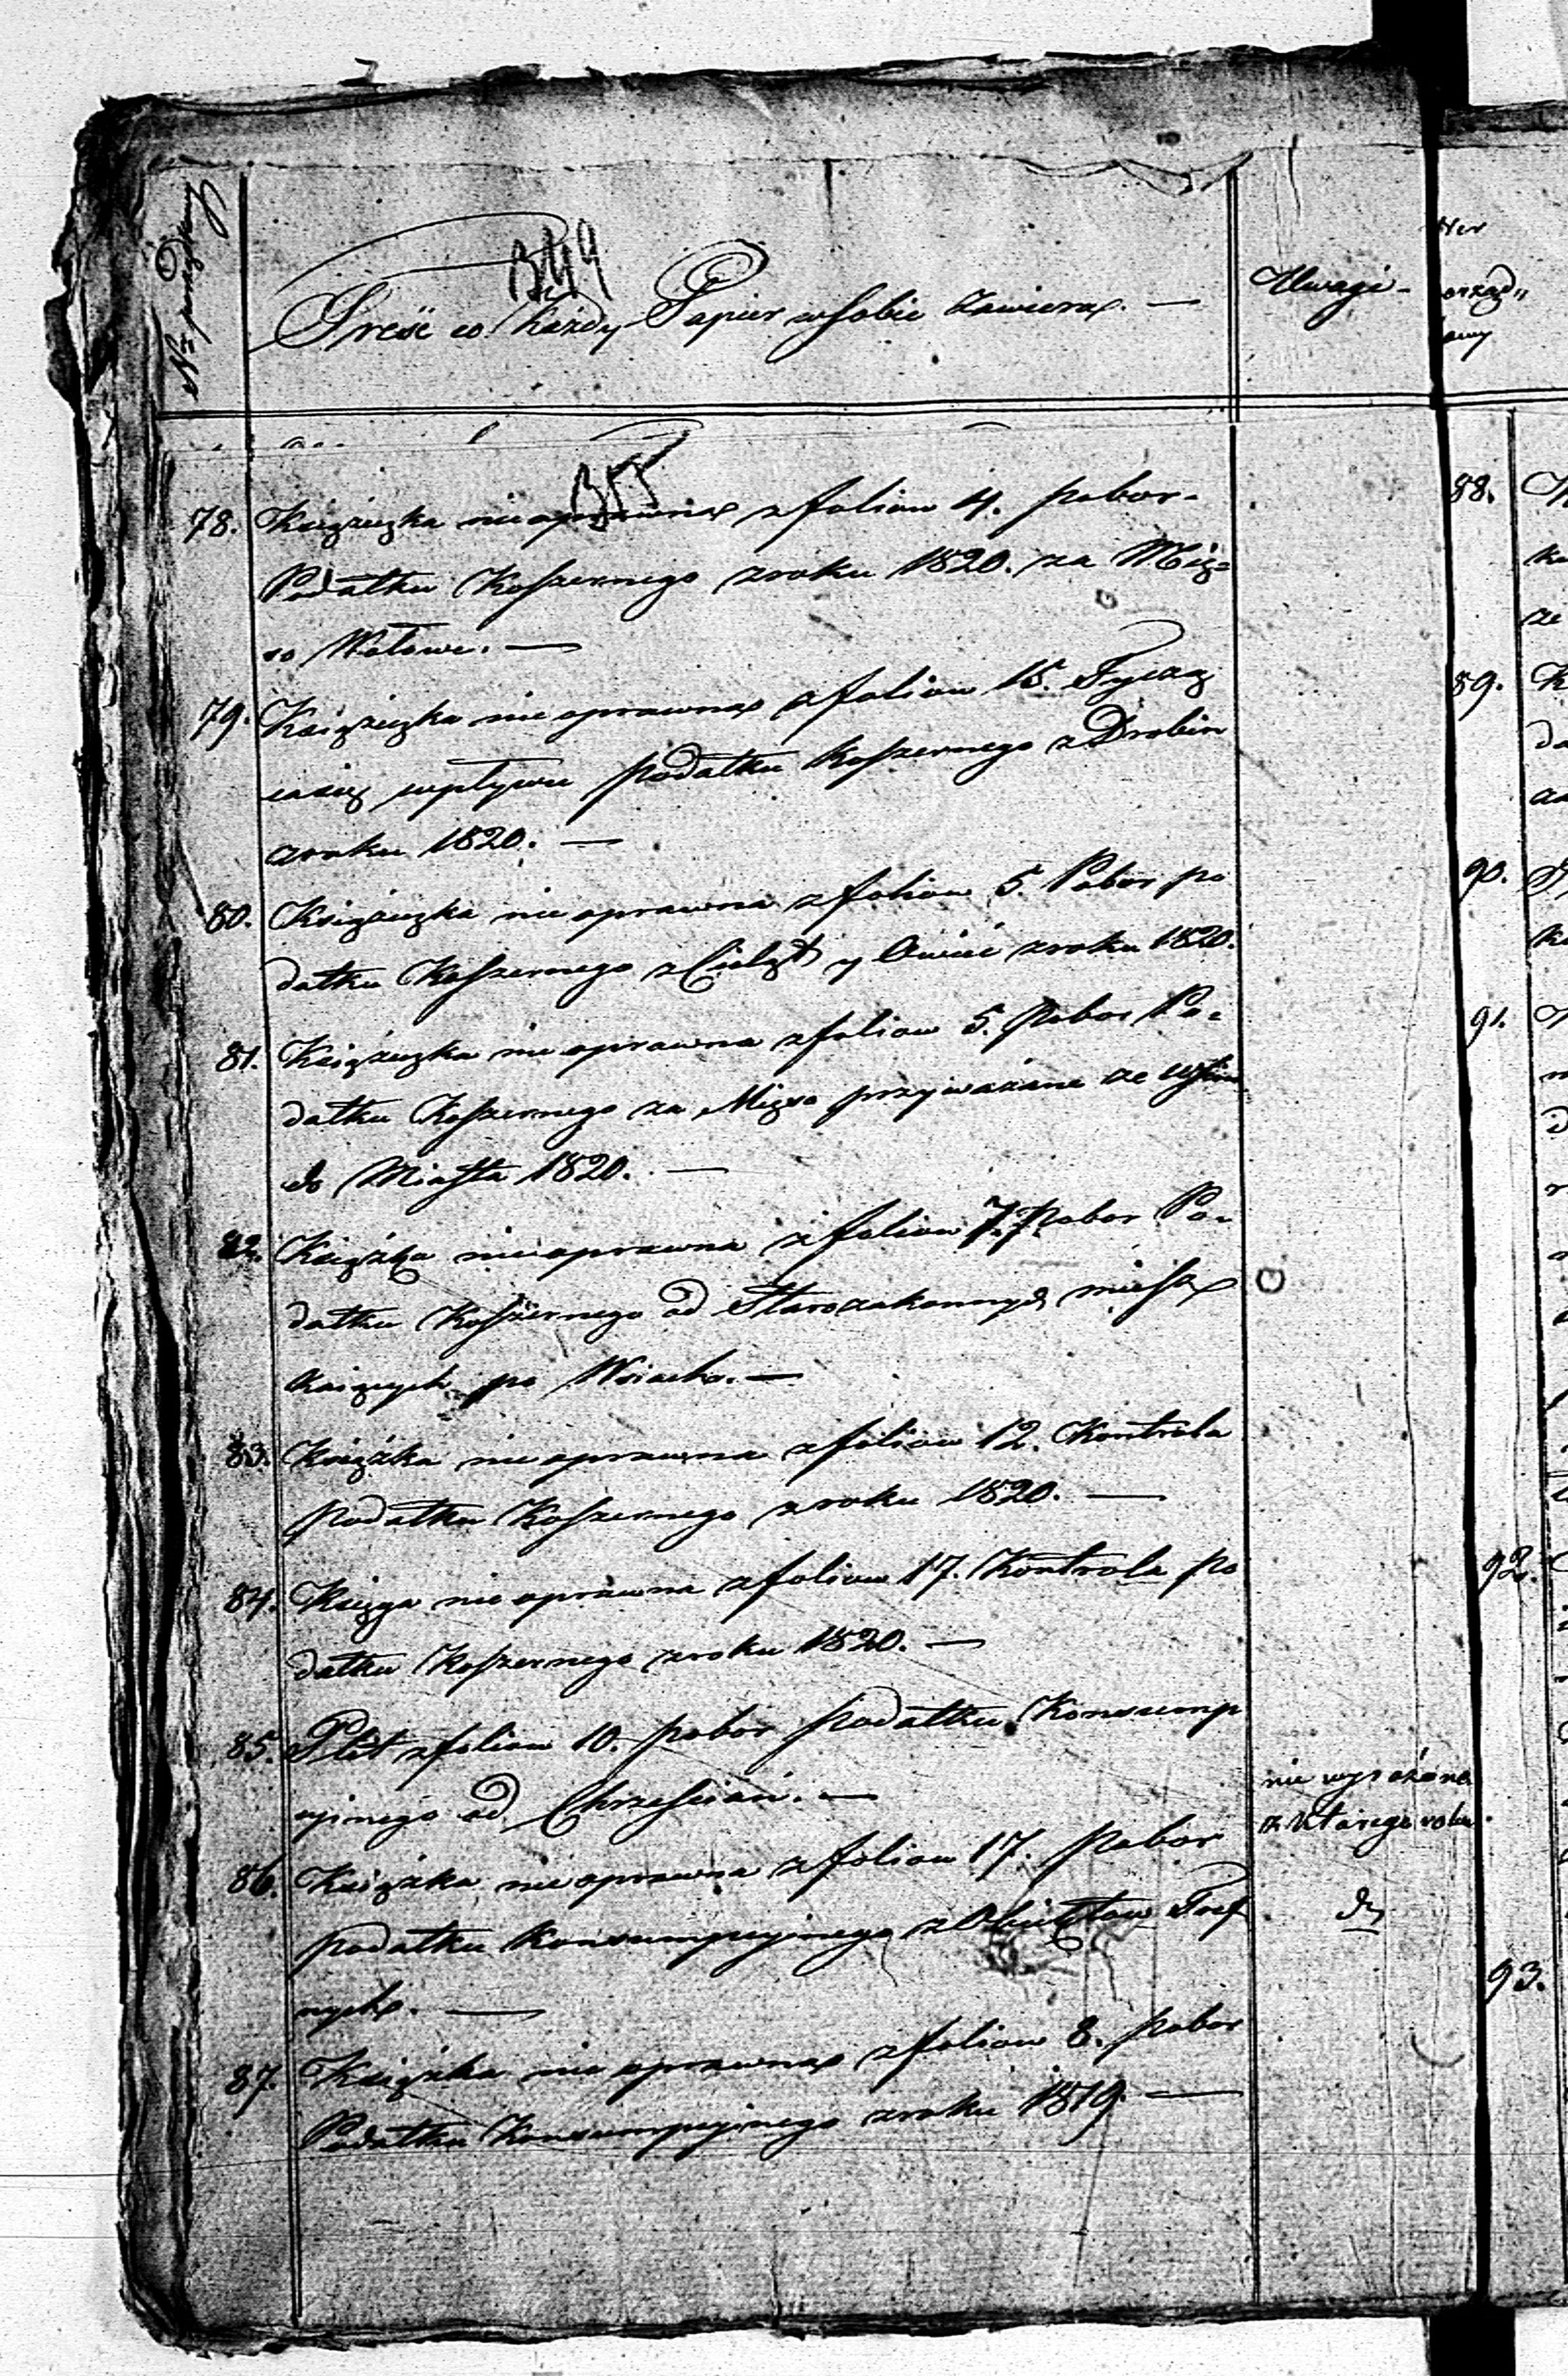 Nro porządkowy
Treść co każdy Papier w sobie zawiera. —
Uwagi -
78. Książeczka nieoprawna z foliow 4. pobor-
Podatku Koszernego z roku 1820. za Mię=
so Wołowe. —
79. Książeczka nie oprawna z foliow 15. Tycząc
ca się wpływu podatku koszernego z Drobiu
z roku 1820. —
80. Książeczka nie oprawna z foliow 5. Pobor po
datku Koszernego z Cieląt y Owiec z roku 1820.
81. Książeczka nie oprawna z foliow 5. Pobor Po=
datku Koszernego za Mięso przywożone ze wsiow
do Miasta 1820. —
82. Książka nieoprawna z foliow 7. Pobor Po=
datku Koszernego od Starozakonnych miesz
kaiących po Wsiach. —
83. Książka nie oprawna z foliow 12. Kontrola
podatku Koszernego z roku 1820. —
84. Księga nie oprawna z foliow 17. Kontrola po
datku Koszernego z roku 1820. —
85. Plit z foliow 10. pobor podatku Konsump
cyinego od Chrześcian. —
nie wyrażono
z którego roku.
86. Książka nie oprawna z foliow 17. Pobor
podatku Konsumpcyinego z Obiektow Tref
nych. —
dº
87. Książka nie oprawna z foliow 8. pobor
Podatku Konsumpcyinego z roku 1819. —
Ner
porząd=
kowy
88.
89.
90.
91.
92.
93.